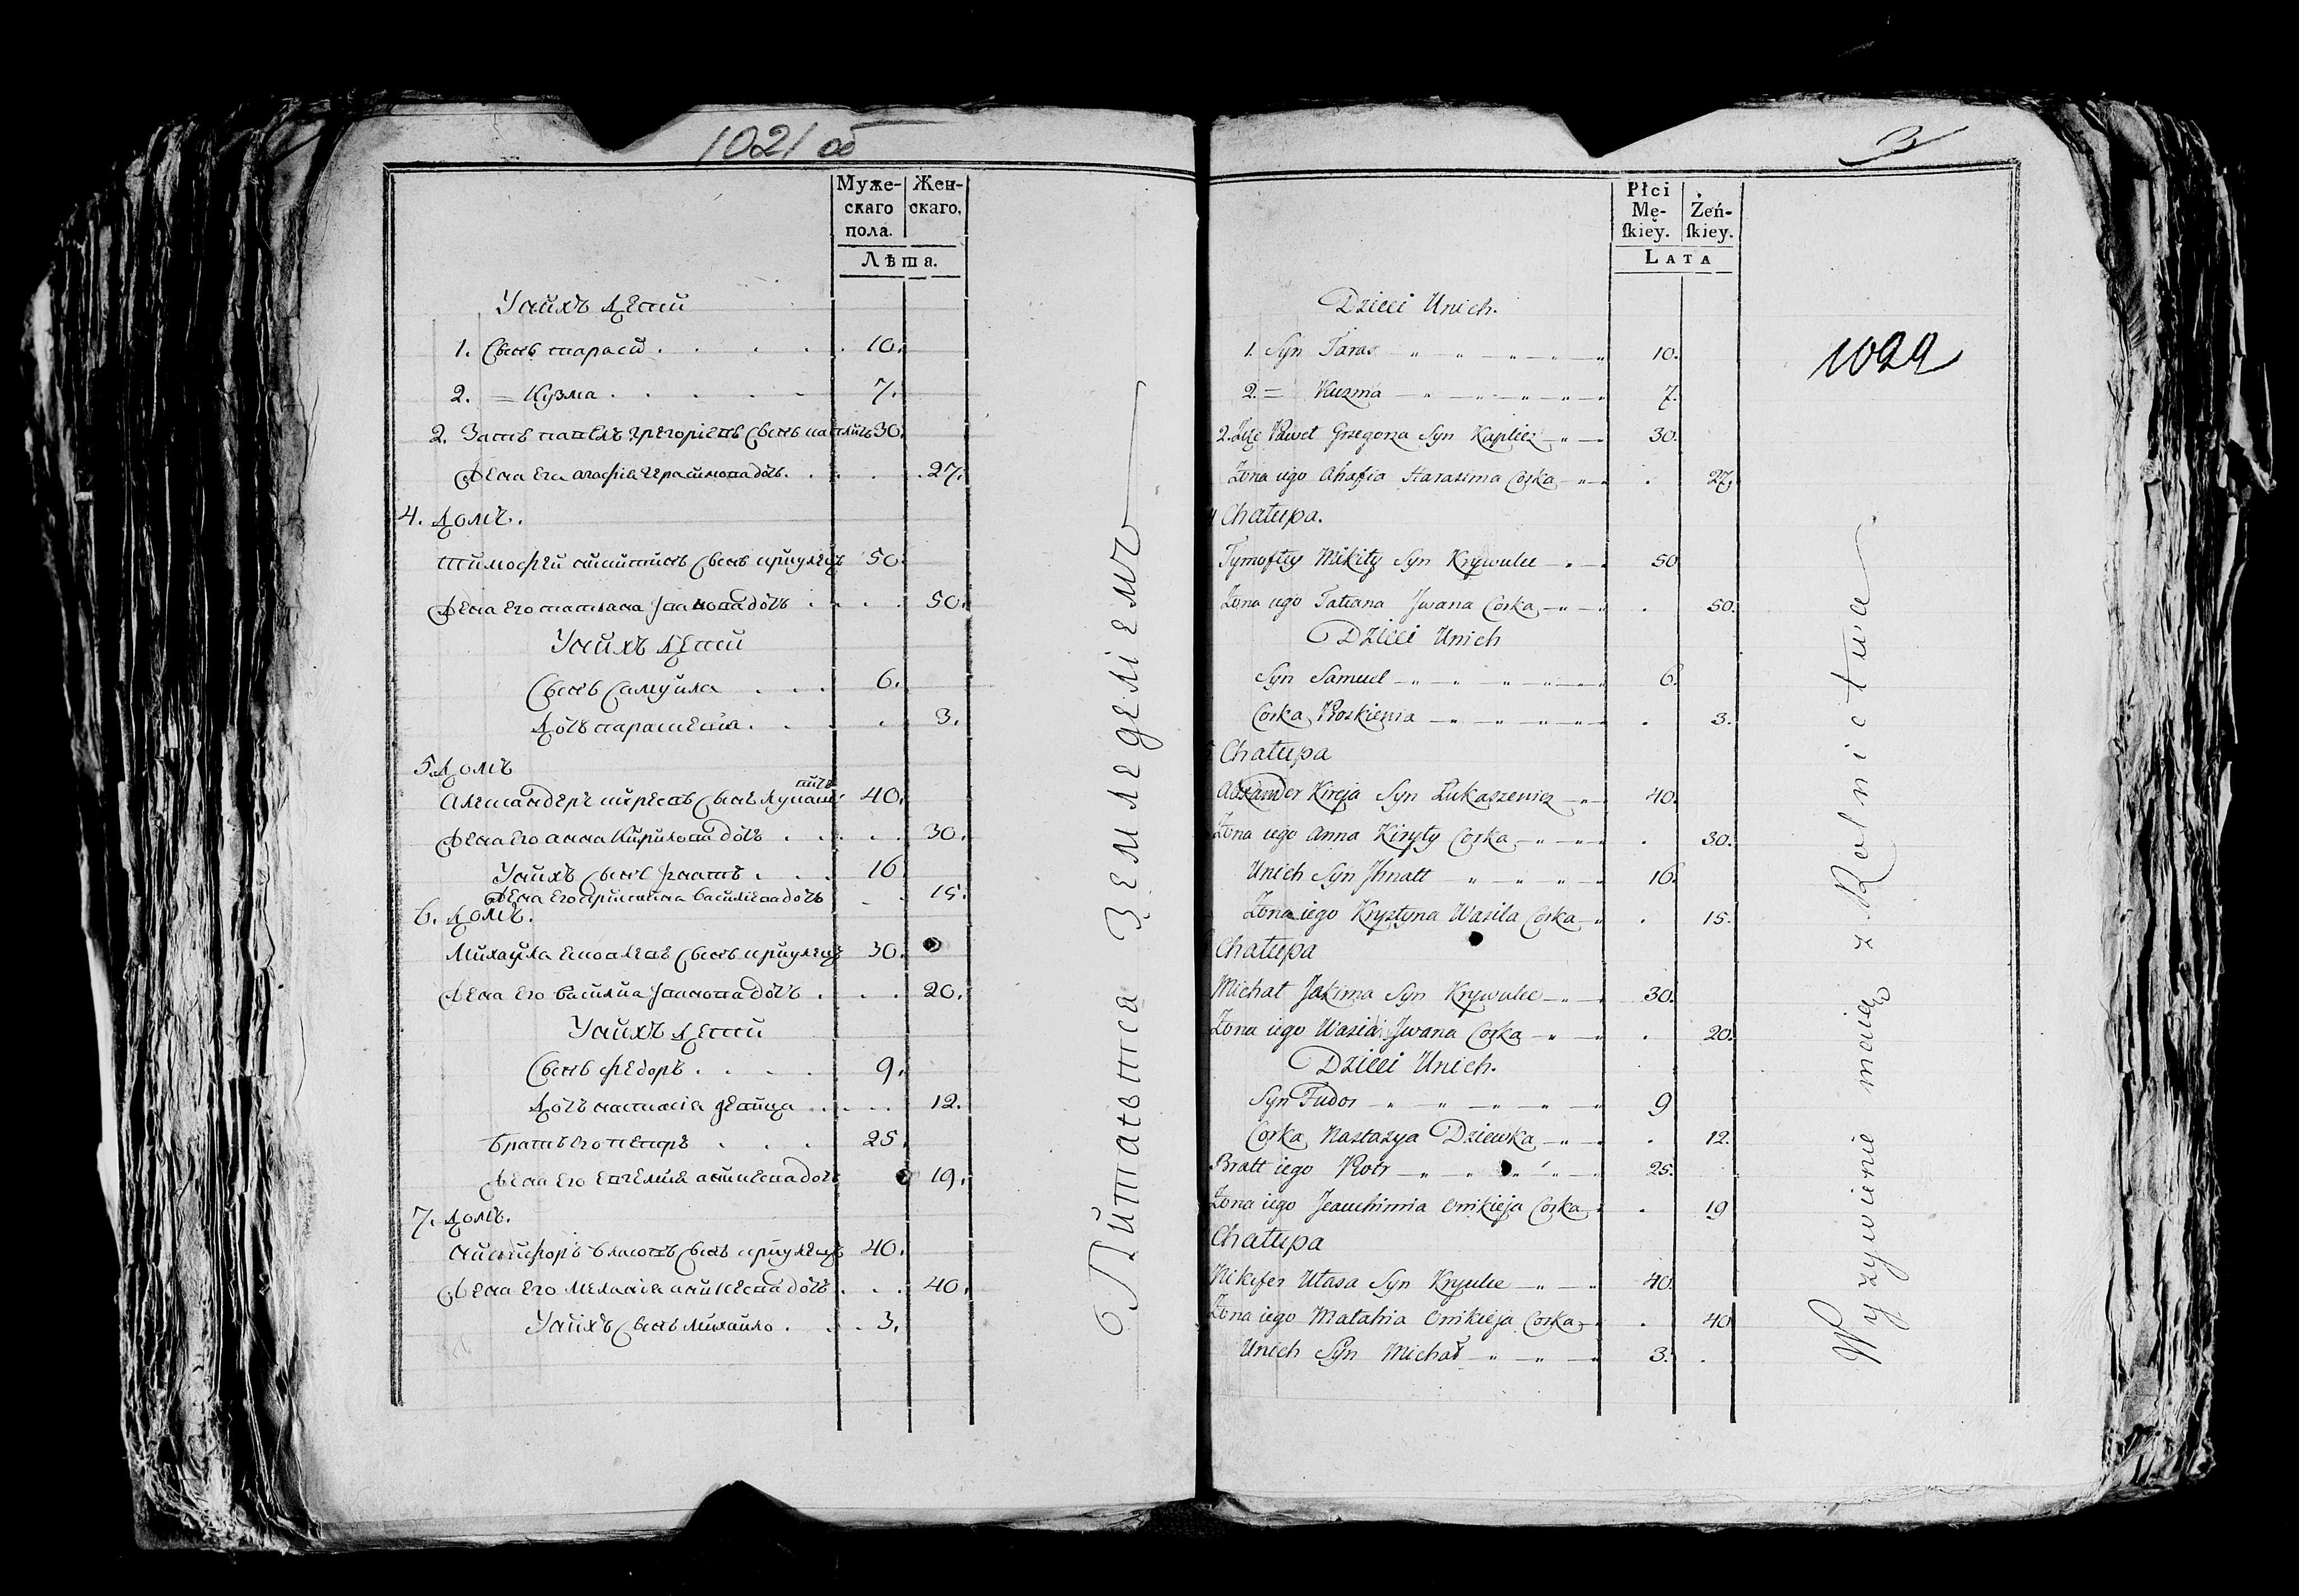 1021 об
Муже-
скаго
пола.
Жен-
скаго.
Лѣта.
У нихъ дети
1. Сынъ тарасй 10.
2. = Кузма 7.
2. Зять павелъ григорiевъ Сынъ 30.
Жена его агафiя герасимова дочь 27.
4. домъ.
тимофей никитинъ Сынъ кривулецъ 50.
Жена его татьяна Iванова дочь 50.
У нихъ дети
Сынъ Самуйла 6.
дочь параскевiя 3.
5. домъ
Александеръ кирѣевъ Сынъ лукашевичъ 40.
Жена его анна Кирилова дочь 30.
У нихъ Сынъ Iгнатъ 16
Жена его христина василiева дочь 15.
6. домъ.
Михайла екововъ Сынъ кривулецъ 30.
Жена его василиса Iванова дочь 20.
У нихъ дети
Сынъ федоръ 9.
дочь настасiя девица 12.
братъ его петръ 25.
Жена его евгемiя аникiева дочь 19.
7. домъ.
никифоръ власовъ Сынъ кривулецъ 40.
Жена его меланiя аникiева дочь 40.
У нихъ Сынъ михайло 3.
Питаются Земледелiемъ
3
Płci
Mę-
ſkiey.
Żeń-
ſkiey.
LATA
1022
Dzieci Unich.
1. Syn Taras 10.
2. = Kuzma 7.
2. Zięć Paweł Grzegorza Syn Kaplicz 30.
Zona iego Ahafia Harasima Corka 27.
4 Chałupa.
Tymoftey Mikity Syn Krywulec 50
Zona iego Tatiana Jwana Corka 50.
Dzieci Unich
Syn Samuel 6.
Corka Proskienia 3.
5 Chałupa
Alexander Kireja Syn Łukaszewicz 40.
Zona iego Anna Kiryły Corka 30.
Unich Syn Jhnatt 16.
Zona iego Krystyna Wasila Corka 15.
Chałupa
Michał Jakima Syn Krywulec 30.
Zona iego Jwana Corka 20.
Dzieci Unich.
Syn Fudor 9
Corka Nastazya Dziewka 12.
Bratt iego Piotr 25.
Zona iego Jeauchimia Onikieja Corka 19
Chałupa
Nikifer Ułasa Syn Krywulec 40.
Zona iego Małahia Onikieja Corka 40
Unich Syn Michał 3.
Wyzywienie maią z Rolnictwa